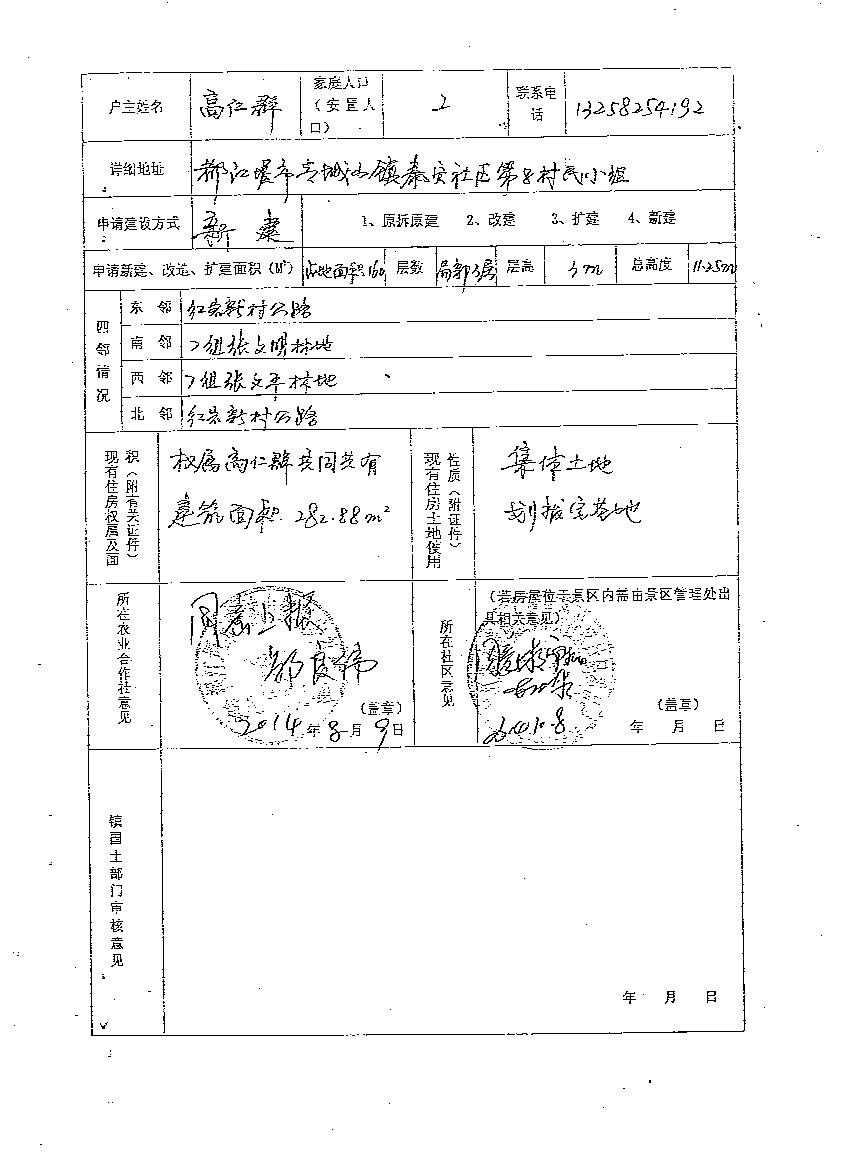 户主姓名 高仁群 家庭人口（安置人口） 2 联系电话 13258254192
详细地址 都江堰市青城山镇泰安社区第8村民小组
申请建设方式 新建 1、原拆原建 2、改建 3、扩建 4、新建
申请新建、改造、扩建面积（M²） 占地面积160 层数 局部3层 层高 3m 总高度 11.25m
四邻情况
东邻 红岩新村公路
南邻 7组张文明林地
西邻 7组张文平林地
北邻 红岩新村公路
现有住房权属及面积（附有关证件）
权属高仁群共同共有
建筑面积 282.88m²
现有住房土地使用性质（附证件）
集体土地
划拨宅基地
所在农业合作社意见
同意上报
（盖章）
2014年8月9日
所在社区意见
（若房屋位于景区内需由景区管理处出
具相关意见）
（盖章）
年 月 日
镇国土部门审核意见
年 月 日